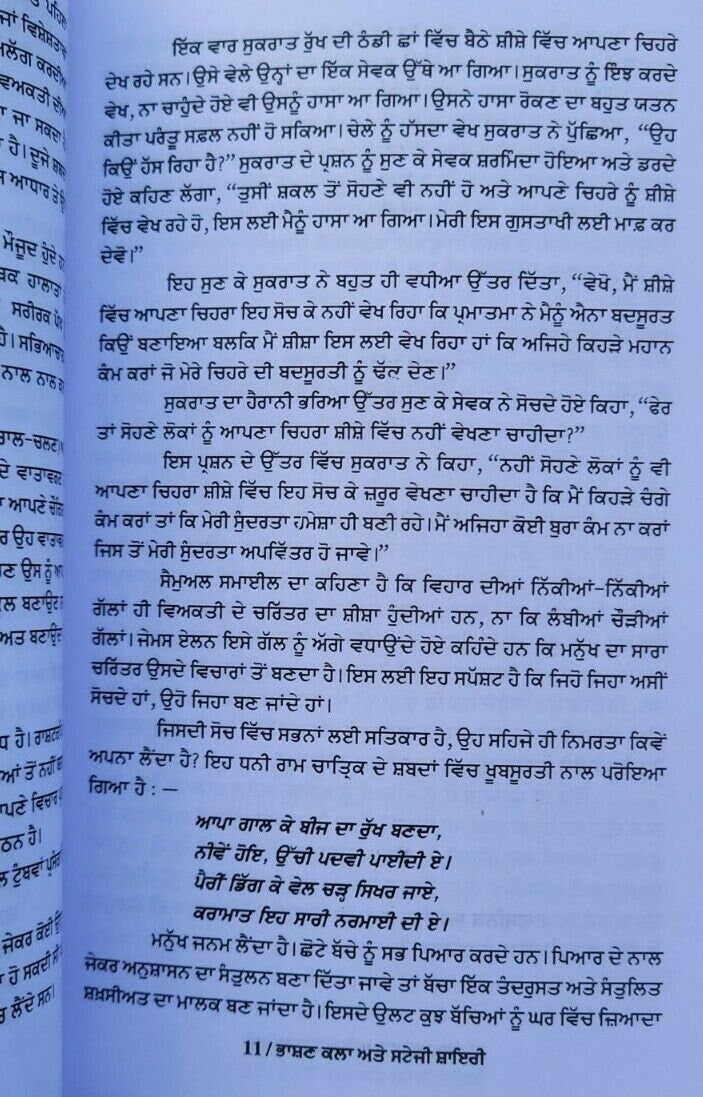 ਇੱਕ ਵਾਰ ਸੁਕਰਾਤ ਰੁੱਖ ਦੀ ਠੰਡੀ ਛਾਂ ਵਿੱਚ ਬੈਠੇ ਸ਼ੀਸ਼ੇ ਵਿੱਚ ਆਪਣਾ ਚਿਹਰੇ
ਦੇਖ ਰਹੇ ਸਨ। ਉਸੇ ਵੇਲੇ ਉਨ੍ਹਾਂ ਦਾ ਇੱਕ ਸੇਵਕ ਉੱਥੇ ਆ ਗਿਆ। ਸੁਕਰਾਤ ਨੂੰ ਇੰਝ ਕਰਦੇ
ਵੇਖ, ਨਾ ਚਾਹੁੰਦੇ ਹੋਏ ਵੀ ਉਸਨੂੰ ਹਾਸਾ ਆ ਗਿਆ। ਉਸਨੇ ਹਾਸਾ ਰੋਕਣ ਦਾ ਬਹੁਤ ਯਤਨ
ਕੀਤਾ ਪਰੰਤੂ ਸਫ਼ਲ ਨਹੀਂ ਹੋ ਸਕਿਆ। ਚੇਲੇ ਨੂੰ ਹੱਸਦਾ ਵੇਖ ਸੁਕਰਾਤ ਨੇ ਪੁੱਛਿਆ, “ਉਹ
ਕਿਉਂ ਹੱਸ ਰਿਹਾ ਹੈ?” ਸੁਕਰਾਤ ਦੇ ਪ੍ਰਸ਼ਨ ਨੂੰ ਸੁਣ ਕੇ ਸੇਵਕ ਸ਼ਰਮਿੰਦਾ ਹੋਇਆ ਅਤੇ ਡਰਦੇ
ਹੋਏ ਕਹਿਣ ਲੱਗਾ, “ਤੁਸੀਂ ਸ਼ਕਲ ਤੋਂ ਸੋਹਣੇ ਵੀ ਨਹੀਂ ਹੋ ਅਤੇ ਆਪਣੇ ਚਿਹਰੇ ਨੂੰ ਸ਼ੀਸ਼ੇ
ਵਿੱਚ ਵੇਖ ਰਹੇ ਹੋ, ਇਸ ਲਈ ਮੈਨੂੰ ਹਾਸਾ ਆ ਗਿਆ। ਮੇਰੀ ਇਸ ਗੁਸਤਾਖੀ ਲਈ ਮਾਫ਼ ਕਰ
ਦੇਵੋ।”
ਇਹ ਸੁਣ ਕੇ ਸੁਕਰਾਤ ਨੇ ਬਹੁਤ ਹੀ ਵਧੀਆ ਉੱਤਰ ਦਿੱਤਾ, “ਵੇਖੋ, ਮੈਂ ਸ਼ੀਸ਼ੇ
ਵਿੱਚ ਆਪਣਾ ਚਿਹਰਾ ਇਹ ਸੋਚ ਕੇ ਨਹੀਂ ਵੇਖ ਰਿਹਾ ਕਿ ਪ੍ਰਮਾਤਮਾ ਨੇ ਮੈਨੂੰ ਐਨਾ ਬਦਸੂਰਤ
ਕਿਉਂ ਬਣਾਇਆ ਬਲਕਿ ਮੈਂ ਸ਼ੀਸ਼ਾ ਇਸ ਲਈ ਵੇਖ ਰਿਹਾ ਹਾਂ ਕਿ ਅਜਿਹੇ ਕਿਹੜੇ ਮਹਾਨ
ਕੰਮ ਕਰਾਂ ਜੋ ਮੇਰੇ ਚਿਹਰੇ ਦੀ ਬਦਸੂਰਤੀ ਨੂੰ ਢੱਕ ਦੇਣ।”
ਸੁਕਰਾਤ ਦਾ ਹੈਰਾਨੀ ਭਰਿਆ ਉੱਤਰ ਸੁਣ ਕੇ ਸੇਵਕ ਨੇ ਸੋਚਦੇ ਹੋਏ ਕਿਹਾ, “ਫੇਰ
ਤਾਂ ਸੋਹਣੇ ਲੋਕਾਂ ਨੂੰ ਆਪਣਾ ਚਿਹਰਾ ਸ਼ੀਸ਼ੇ ਵਿੱਚ ਨਹੀਂ ਵੇਖਣਾ ਚਾਹੀਦਾ?”
ਇਸ ਪ੍ਰਸ਼ਨ ਦੇ ਉੱਤਰ ਵਿੱਚ ਸੁਕਰਾਤ ਨੇ ਕਿਹਾ, “ਨਹੀਂ ਸੋਹਣੇ ਲੋਕਾਂ ਨੂੰ ਵੀ
ਆਪਣਾ ਚਿਹਰਾ ਸ਼ੀਸ਼ੇ ਵਿੱਚ ਇਹ ਸੋਚ ਕੇ ਜ਼ਰੂਰ ਵੇਖਣਾ ਚਾਹੀਦਾ ਹੈ ਕਿ ਮੈਂ ਕਿਹੜੇ ਚੰਗੇ
ਕੰਮ ਕਰਾਂ ਤਾਂ ਕਿ ਮੇਰੀ ਸੁੰਦਰਤਾ ਹਮੇਸ਼ਾ ਹੀ ਬਣੀ ਰਹੇ। ਮੈਂ ਅਜਿਹਾ ਕੋਈ ਬੁਰਾ ਕੰਮ ਨਾ ਕਰਾਂ
ਜਿਸ ਤੋਂ ਮੇਰੀ ਸੁੰਦਰਤਾ ਅਪਵਿੱਤਰ ਹੋ ਜਾਵੇ।”
ਸੈਮੁਅਲ ਸਮਾਈਲ ਦਾ ਕਹਿਣਾ ਹੈ ਕਿ ਵਿਹਾਰ ਦੀਆਂ ਨਿੱਕੀਆਂ-ਨਿੱਕੀਆਂ
ਗੱਲਾਂ ਹੀ ਵਿਅਕਤੀ ਦੇ ਚਰਿੱਤਰ ਦਾ ਸ਼ੀਸ਼ਾ ਹੁੰਦੀਆਂ ਹਨ, ਨਾ ਕਿ ਲੰਬੀਆਂ ਚੌੜੀਆਂ
ਗੱਲਾਂ। ਜੇਮਸ ਏਲਨ ਇਸੇ ਗੱਲ ਨੂੰ ਅੱਗੇ ਵਧਾਉਂਦੇ ਹੋਏ ਕਹਿੰਦੇ ਹਨ ਕਿ ਮਨੁੱਖ ਦਾ ਸਾਰਾ
ਚਰਿੱਤਰ ਉਸਦੇ ਵਿਚਾਰਾਂ ਤੋਂ ਬਣਦਾ ਹੈ। ਇਸ ਲਈ ਇਹ ਸਪੱਸ਼ਟ ਹੈ ਕਿ ਜਿਹੋ ਜਿਹਾ ਅਸੀਂ
ਸੋਚਦੇ ਹਾਂ, ਉਹੋ ਜਿਹਾ ਬਣ ਜਾਂਦੇ ਹਾਂ।
ਜਿਸਦੀ ਸੋਚ ਵਿੱਚ ਸਭਨਾਂ ਲਈ ਸਤਿਕਾਰ ਹੈ, ਉਹ ਸਹਿਜੇ ਹੀ ਨਿਮਰਤਾ ਕਿਵੇਂ
ਅਪਨਾ ਲੈਂਦਾ ਹੈ? ਇਹ ਧਨੀ ਰਾਮ ਚਾਤ੍ਰਿਕ ਦੇ ਸ਼ਬਦਾਂ ਵਿੱਚ ਖੂਬਸੂਰਤੀ ਨਾਲ ਪਰੋਇਆ
ਗਿਆ ਹੈ : —
ਆਪਾ ਗਾਲ ਕੇ ਬੀਜ ਦਾ ਰੁੱਖ ਬਣਦਾ,
ਨੀਵੇਂ ਹੋਇ, ਉੱਚੀ ਪਦਵੀ ਪਾਈਦੀ ਏ।
ਪੈਰੀਂ ਡਿੱਗ ਕੇ ਵੇਲ ਚੜ੍ਹ ਸਿਖਰ ਜਾਏ,
ਕਰਾਮਾਤ ਇਹ ਸਾਰੀ ਨਰਮਾਈ ਦੀ ਏ।
ਮਨੁੱਖ ਜਨਮ ਲੈਂਦਾ ਹੈ। ਛੋਟੇ ਬੱਚੇ ਨੂੰ ਸਭ ਪਿਆਰ ਕਰਦੇ ਹਨ। ਪਿਆਰ ਦੇ ਨਾਲ
ਜੇਕਰ ਅਨੁਸ਼ਾਸਨ ਦਾ ਸੰਤੁਲਨ ਬਣਾ ਦਿੱਤਾ ਜਾਵੇ ਤਾਂ ਬੱਚਾ ਇੱਕ ਤੰਦਰੁਸਤ ਅਤੇ ਸੰਤੁਲਿਤ
ਸ਼ਖ਼ਸੀਅਤ ਦਾ ਮਾਲਕ ਬਣ ਜਾਂਦਾ ਹੈ। ਇਸਦੇ ਉਲਟ ਕੁਝ ਬੱਚਿਆਂ ਨੂੰ ਘਰ ਵਿੱਚ ਜ਼ਿਆਦਾ
11/ਭਾਸ਼ਣ ਕਲਾ ਅਤੇ ਸਟੇਜੀ ਸ਼ਾਇਰੀ